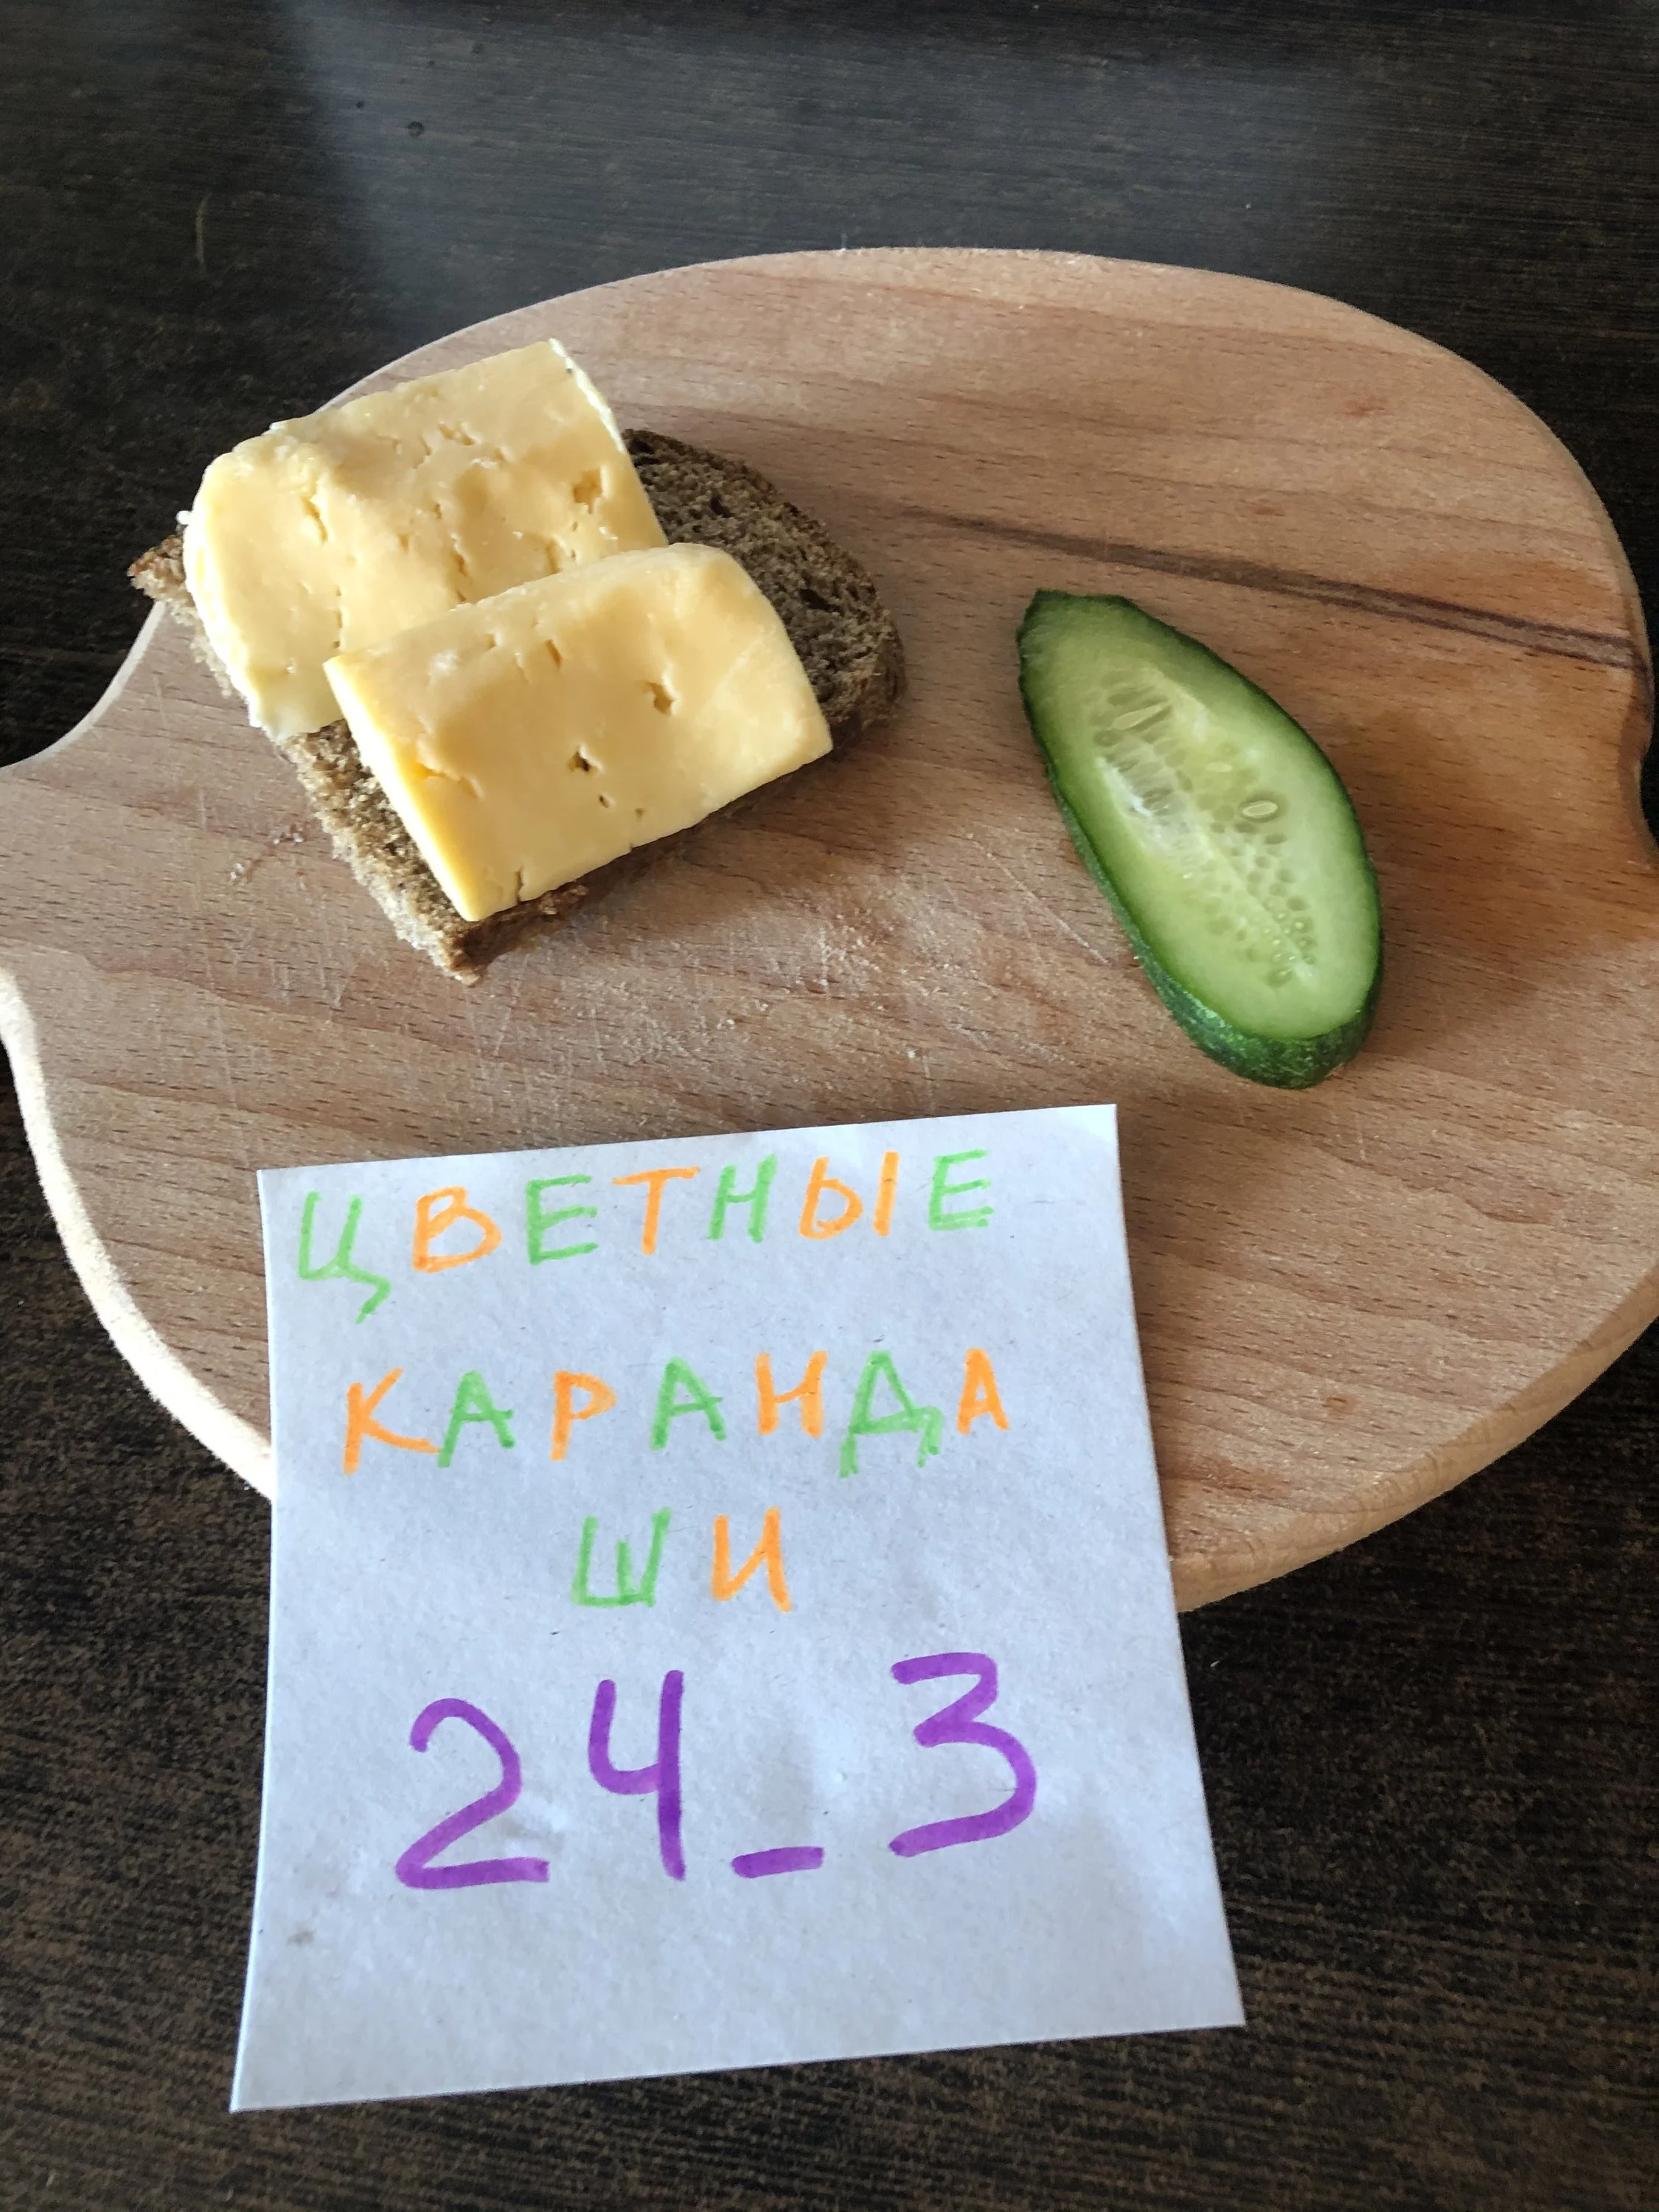 ЦВЕТНЫЕ
КАРАНДА
ШИ
24_3